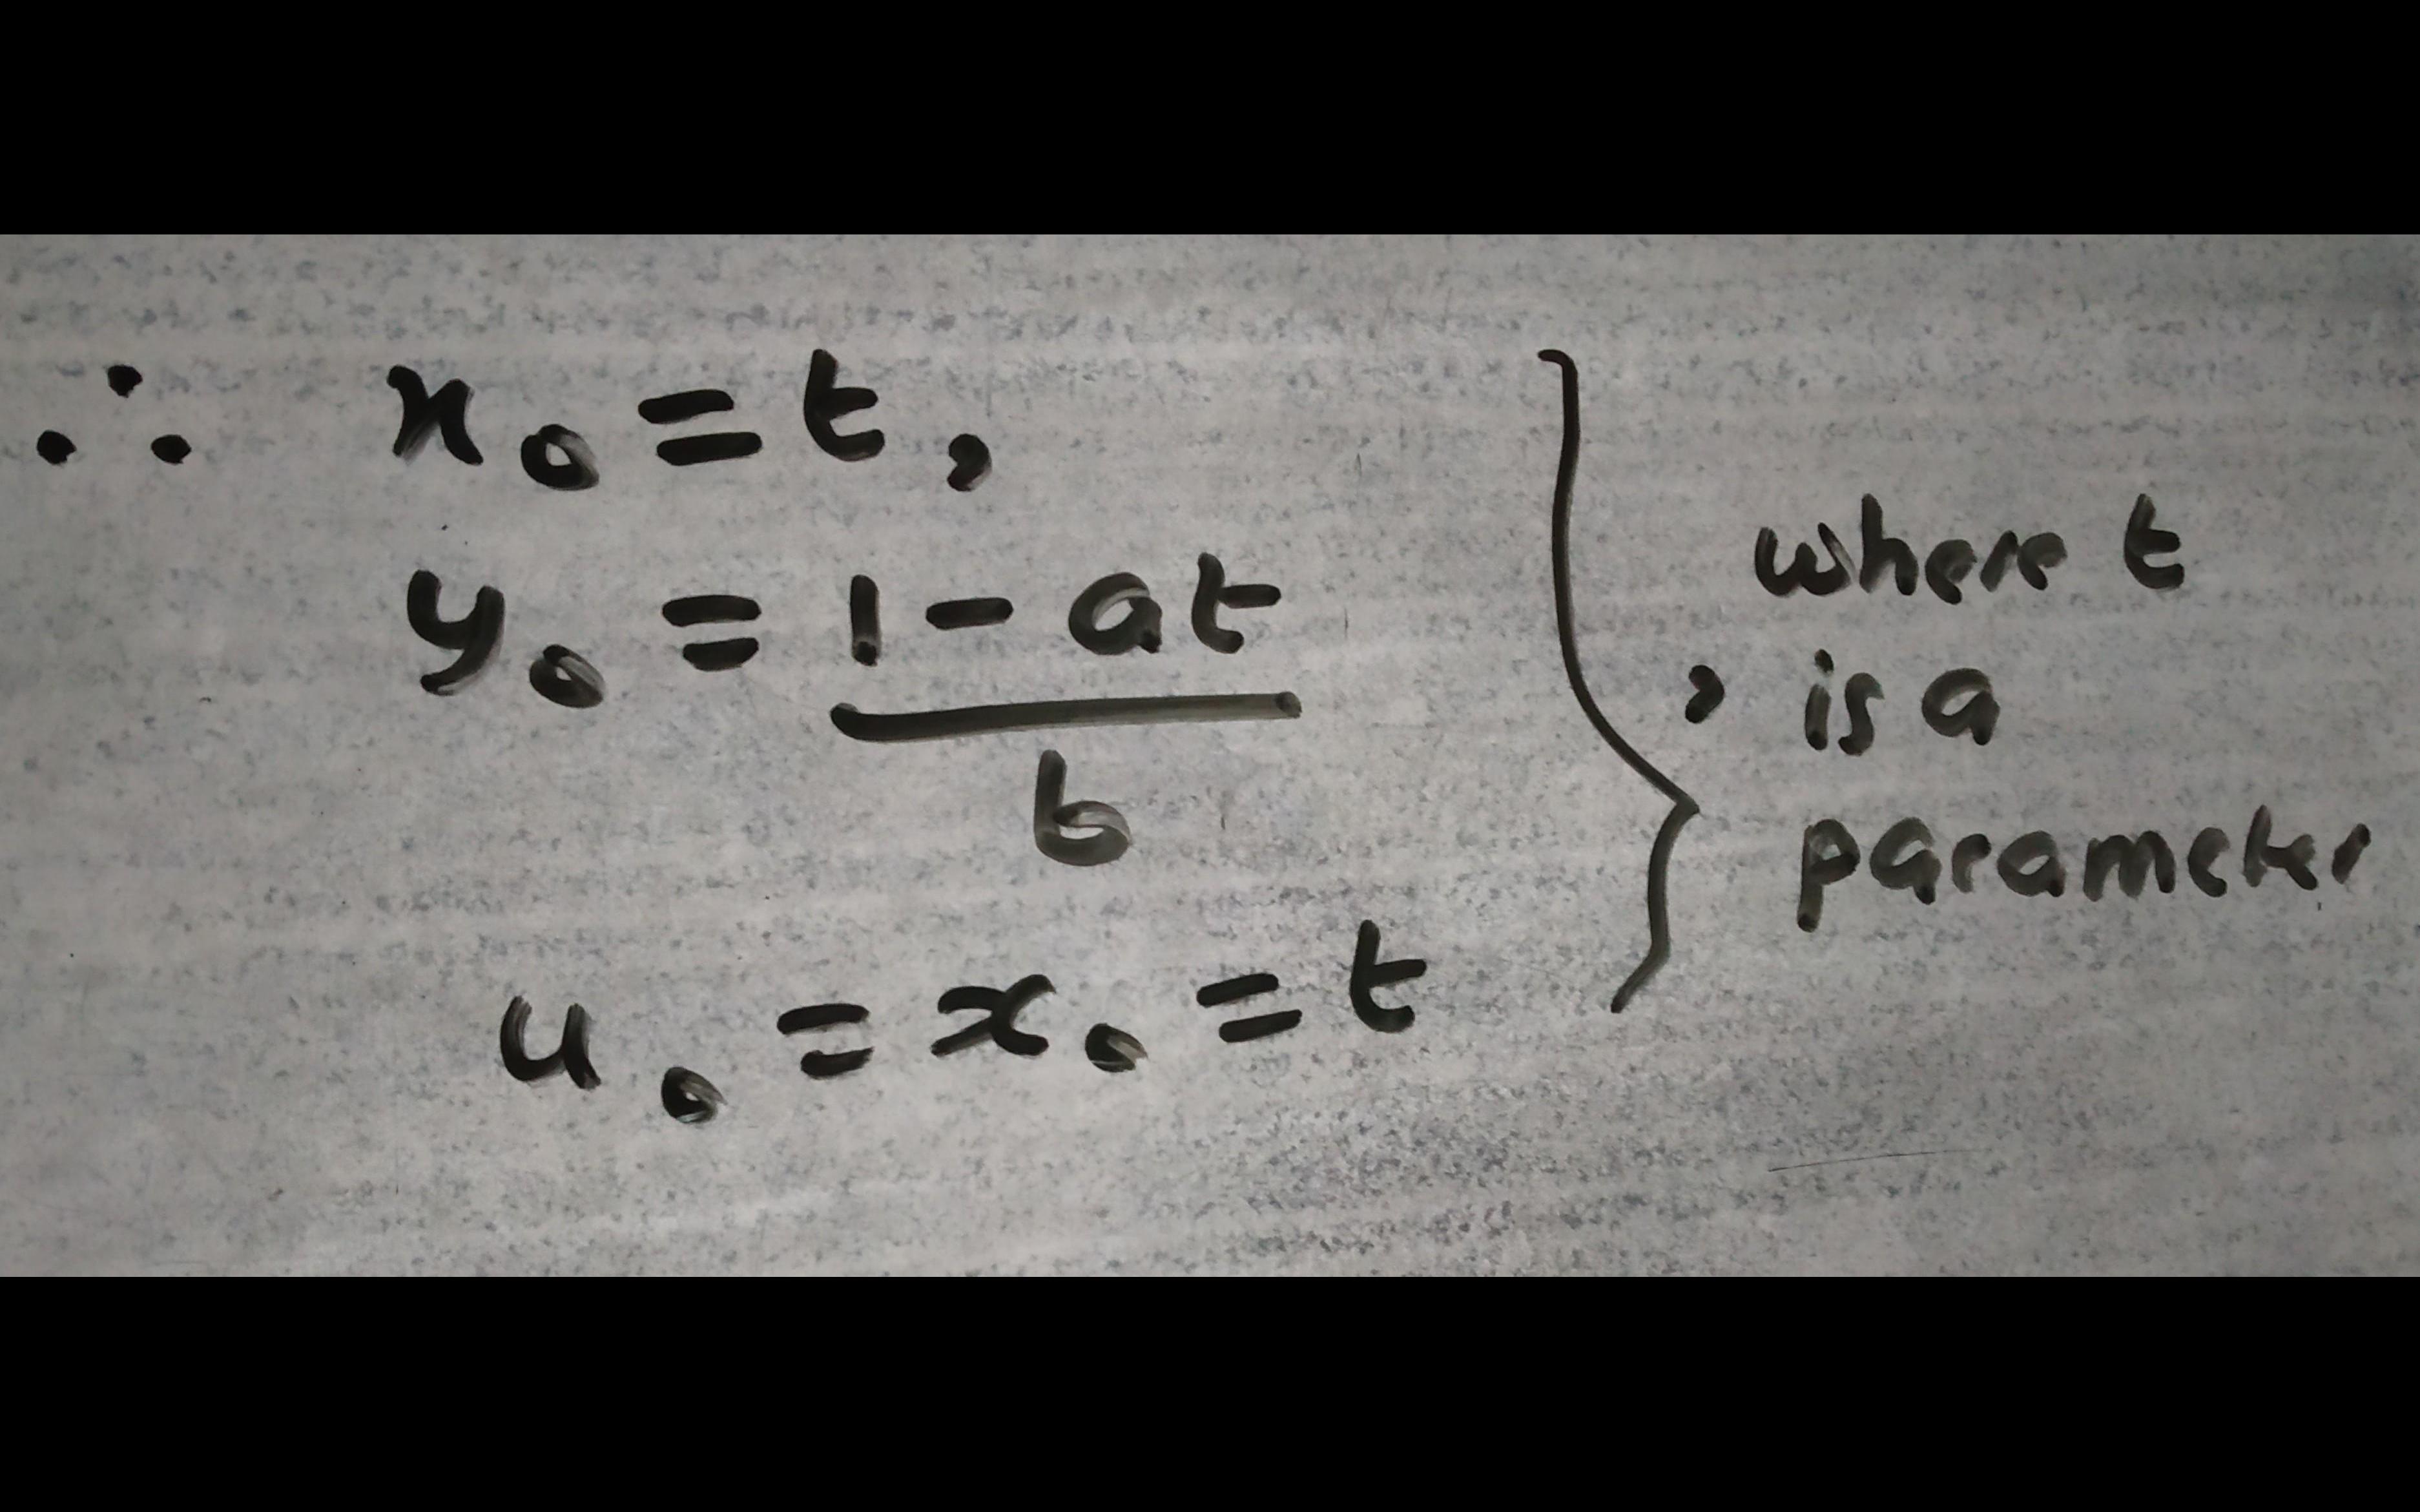 ∴ x₀ = t,
y₀ = (1 - at)/b
u₀ = x₀ = t
} , where t
is a
parameter